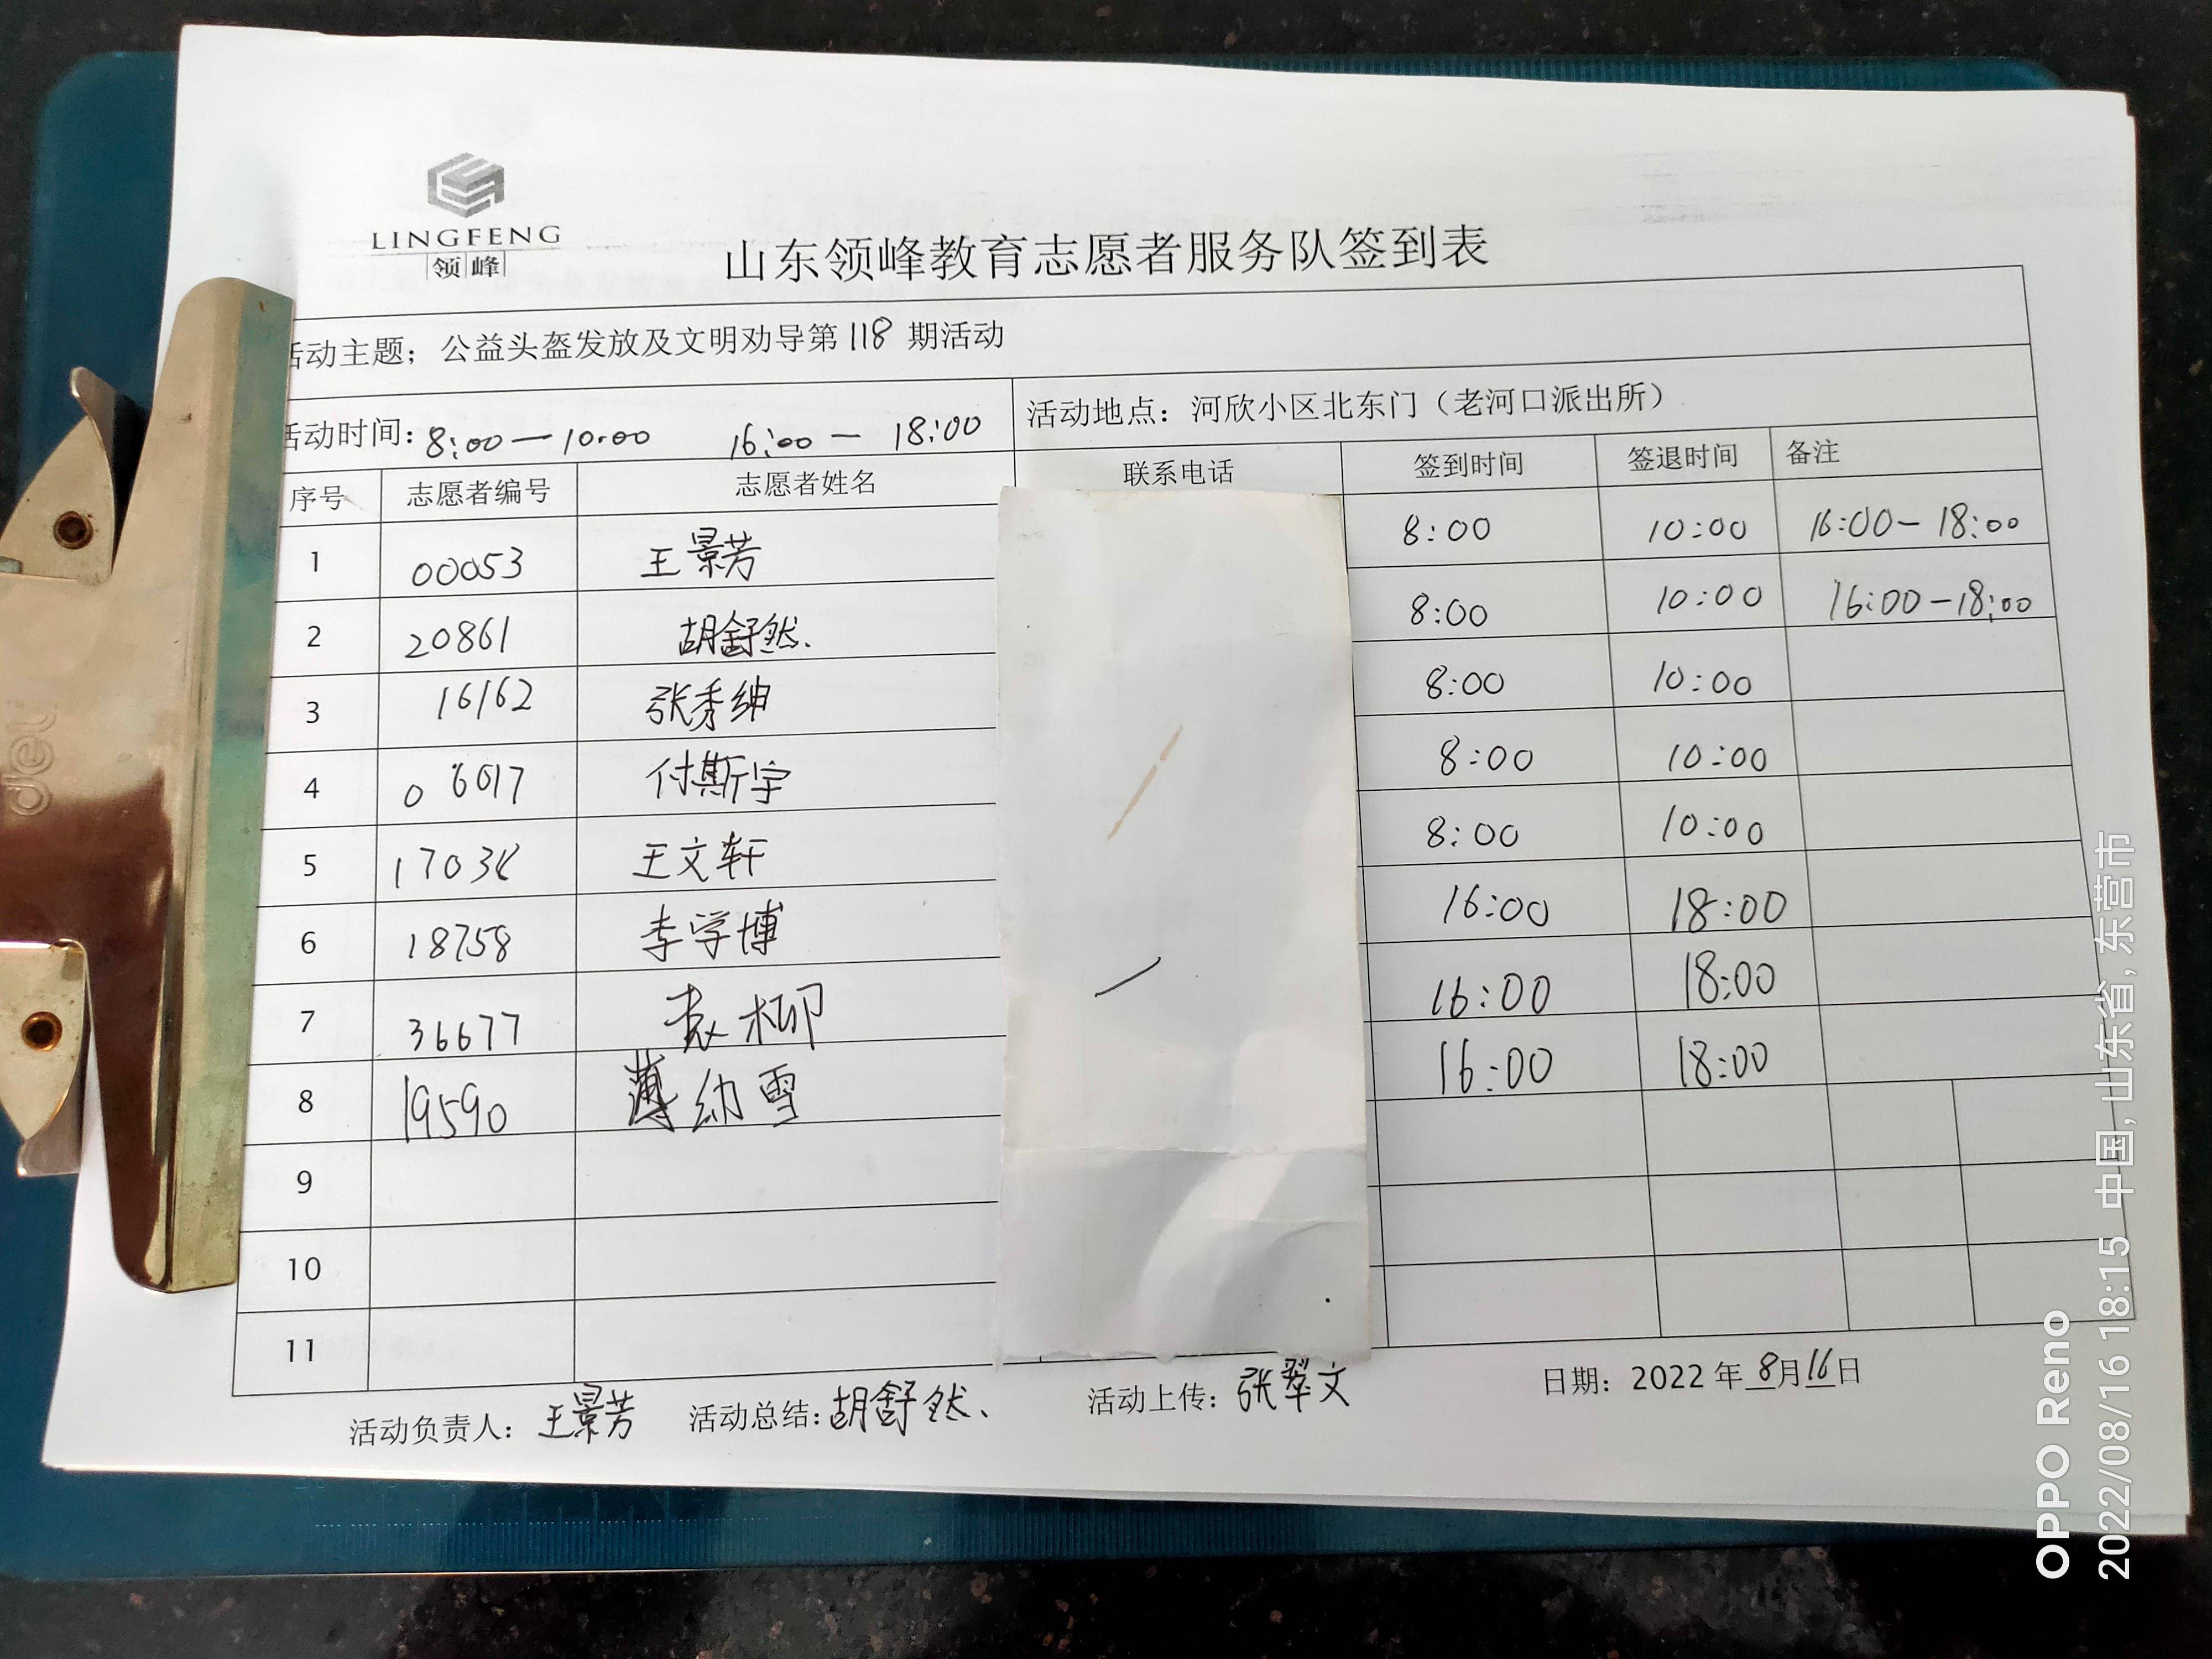 LINGFENG
领峰
山东领峰教育志愿者服务队签到表
活动主题；公益头盔发放及文明劝导第118期活动
活动时间：8:00—10:00 16:00—18:00 活动地点：河欣小区北东门（老河口派出所）
序号 志愿者编号 志愿者姓名 联系电话 签到时间 签退时间 备注
1 00053 王景芳 8:00 10:00 16:00-18:00
2 20861 胡舒然. 8:00 10:00 16:00-18:00
3 16162 张秀绅 8:00 10:00
4 06017 付斯宇 8:00 10:00
5 王文轩 8:00 10:00
6 18758 李学博 16:00 18:00
7 36677 袁柳 16:00 18:00
8 19590 薄幼雪 16:00 18:00
9
10
11
活动负责人：王景芳 活动总结:胡舒然、 活动上传：张翠文 日期：2022年8月16日
deli
OPPO Reno
2022/08/16 18:15 中国, 山东省, 东营市